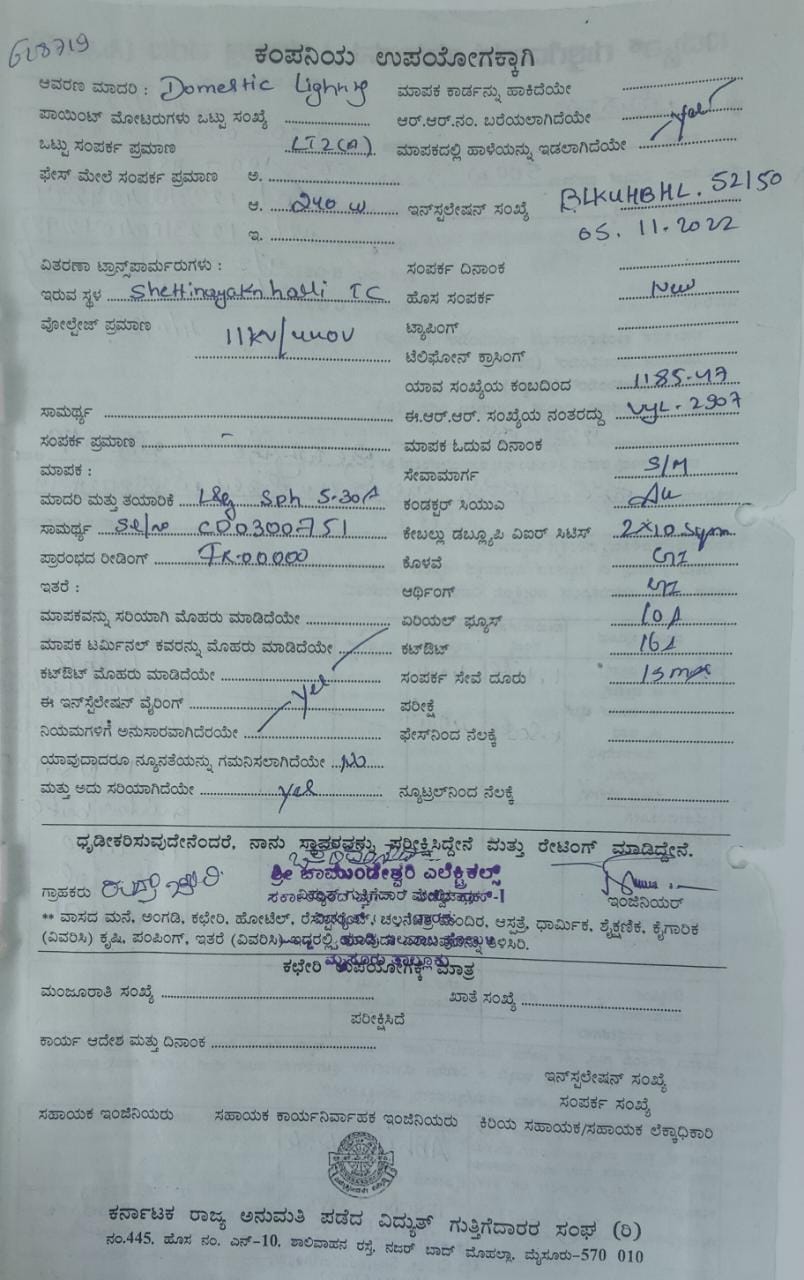 628719
ಕಂಪನಿಯ ಉಪಯೋಗಕ್ಕಾಗಿ
ಆವರಣ ಮಾದರಿ : Domestic Lighting ಮಾಪಕ ಕಾರ್ಡನ್ನು ಹಾಕಿದೆಯೇ
ಪಾಯಿಂಟ್ ಮೋಟರುಗಳು ಒಟ್ಟು ಸಂಖ್ಯೆ ಆರ್.ಆರ್.ನಂ. ಬರೆಯಲಾಗಿದೆಯೇ yes
ಒಟ್ಟು ಸಂಪರ್ಕ ಪ್ರಮಾಣ LT2(A) ಮಾಪಕದಲ್ಲಿ ಹಾಳೆಯನ್ನು ಇಡಲಾಗಿದೆಯೇ
ಫೇಸ್ ಮೇಲೆ ಸಂಪರ್ಕ ಪ್ರಮಾಣ ಅ.
ಆ. 240 W ಇನ್‌ಸ್ಟಲೇಷನ್ ಸಂಖ್ಯೆ BLKUHBHL.52150
ಇ. 05.11.2022
ವಿತರಣಾ ಟ್ರಾನ್ಸ್‌ಪಾರ್ಮರುಗಳು : ಸಂಪರ್ಕ ದಿನಾಂಕ
ಇರುವ ಸ್ಥಳ Shettinayakn halli TC ಹೊಸ ಸಂಪರ್ಕ New
ವೋಲ್ಟೇಜ್ ಪ್ರಮಾಣ 11KV/440V ಟ್ಯಾಪಿಂಗ್
ಟೆಲಿಫೋನ್ ಕ್ರಾಸಿಂಗ್
ಯಾವ ಸಂಖ್ಯೆಯ ಕಂಬದಿಂದ 1185-47
ಸಾಮರ್ಥ್ಯ ಈ.ಆರ್.ಆರ್. ಸಂಖ್ಯೆಯ ನಂತರದ್ದು VYL-2907
ಸಂಪರ್ಕ ಪ್ರಮಾಣ - ಮಾಪಕ ಓದುವ ದಿನಾಂಕ
ಮಾಪಕ : ಸೇವಾಮಾರ್ಗ S/M
ಮಾದರಿ ಮತ್ತು ತಯಾರಿಕೆ L&G Sph 5-30A ಕಂಡಕ್ಟರ್ ಸಿಯುಎ Alu
ಸಾಮರ್ಥ್ಯ Sl/no CD0300751 ಕೇಬಲ್ಲು ಡಬ್ಲ್ಯೂಪಿ ವಿಐರ್ ಸಿಟಿಸ್ 2×10 Sqmm
ಪ್ರಾರಂಭದ ರೀಡಿಂಗ್ FR.00000 ಕೊಳವೆ GI
ಇತರೆ : ಆರ್ಥಿಂಗ್ GI
ಮಾಪಕವನ್ನು ಸರಿಯಾಗಿ ಮೊಹರು ಮಾಡಿದೆಯೇ ಏರಿಯಲ್ ಫ್ಯೂಸ್ 10A
ಮಾಪಕ ಟರ್ಮಿನಲ್ ಕವರನ್ನು ಮೊಹರು ಮಾಡಿದೆಯೇ ಕಟ್‌ಔಟ್ 16A
ಕಟ್‌ಔಟ್ ಮೊಹರು ಮಾಡಿದೆಯೇ ಸಂಪರ್ಕ ಸೇವೆ ದೂರು
ಈ ಇನ್‌ಸ್ಟೆಲೇಷನ್ ವೈರಿಂಗ್ yes ಪರೀಕ್ಷೆ
ನಿಯಮಗಳಿಗೆ ಅನುಸಾರವಾಗಿದೆರಯೇ ಫೇಸ್‌ನಿಂದ ನೆಲಕ್ಕೆ
ಯಾವುದಾದರೂ ನ್ಯೂನತೆಯನ್ನು ಗಮನಿಸಲಾಗಿದೆಯೇ No
ಮತ್ತು ಅದು ಸರಿಯಾಗಿದೆಯೇ yes ನ್ಯೂಟ್ರಲ್‌ನಿಂದ ನೆಲಕ್ಕೆ
ಧೃಡೀಕರಿಸುವುದೇನೆಂದರೆ, ನಾನು ಸ್ಥಾವರವನ್ನು ಪರೀಕ್ಷಿಸಿದ್ದೇನೆ ಮತ್ತು ರೇಟಿಂಗ್ ಮಾಡಿದ್ದೇನೆ.
ಶ್ರೀ ಚಾಮುಂಡೇಶ್ವರಿ ಎಲೆಕ್ಟ್ರಿಕಲ್ಸ್
ಗ್ರಾಹಕರು ಇಂಜಿನಿಯರ್
** ವಾಸದ ಮನೆ, ಅಂಗಡಿ, ಕಛೇರಿ, ಹೋಟೆಲ್, ಚಲನಚಿತ್ರ ಮಂದಿರ, ಆಸ್ಪತ್ರೆ, ಧಾರ್ಮಿಕ, ಶೈಕ್ಷಣಿಕ, ಕೈಗಾರಿಕ
(ವಿವರಿಸಿ) ಕೃಷಿ, ಪಂಪಿಂಗ್, ಇತರೆ (ವಿವರಿಸಿ) ತಿಳಿಸಿರಿ.
ಮೈಸೂರು ತಾಲ್ಲೂಕು
ಕಛೇರಿ ಉಪಯೋಗಕ್ಕೆ ಮಾತ್ರ
ಮಂಜೂರಾತಿ ಸಂಖ್ಯೆ ಖಾತೆ ಸಂಖ್ಯೆ
ಪರೀಕ್ಷಿಸಿದೆ
ಕಾರ್ಯ ಆದೇಶ ಮತ್ತು ದಿನಾಂಕ
ಇನ್‌ಸ್ಟಲೇಷನ್ ಸಂಖ್ಯೆ
ಸಂಪರ್ಕ ಸಂಖ್ಯೆ
ಸಹಾಯಕ ಇಂಜಿನಿಯರು ಸಹಾಯಕ ಕಾರ್ಯನಿರ್ವಾಹಕ ಇಂಜಿನಿಯರು ಕಿರಿಯ ಸಹಾಯಕ/ಸಹಾಯಕ ಲೆಕ್ಕಾಧಿಕಾರಿ
ಕರ್ನಾಟಕ ರಾಜ್ಯ ಅನುಮತಿ ಪಡೆದ ವಿದ್ಯುತ್ ಗುತ್ತಿಗೆದಾರರ ಸಂಘ (ರಿ)
ನಂ.445, ಹೊಸ ನಂ. ಎನ್-10, ಶಾಲಿವಾಹನ ರಸ್ತೆ, ನಜರ್ ಬಾದ್ ಮೊಹಲ್ಲಾ, ಮೈಸೂರು-570 010